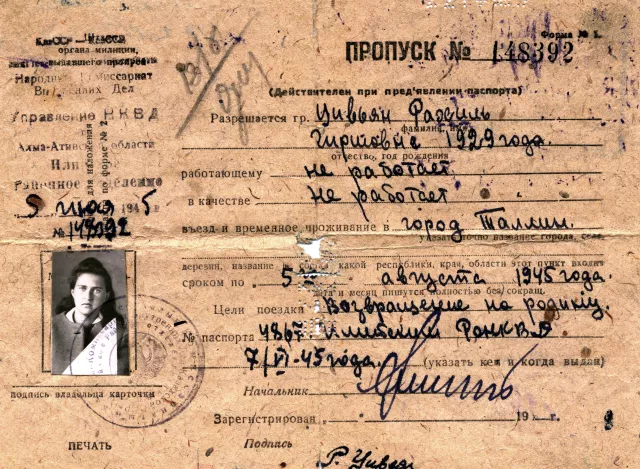 КазССР
органа милиции,
Народный Комиссариат
Внутренних Дел
Управление НКВД
Алма-Атинской области
Районное отделение
5 июля 1945
для наложения
по форме № 2
Форма № 1.
ПРОПУСК № 148392
(Действителен при пред'явлении паспорта)
Разрешается гр. Цивьян Рахиль
фамилия, имя
Гиршовне 1929 года.
отчество, год рождения
работающему не работает
в качестве не работает
въезд и временное проживание в город Таллин.
указать точно название города, села,
деревни, название какой республики, края, области этот пункт входит
сроком по 5 августа 1945 года.
дата и месяц пишутся полностью без сокращ.
Цели поездки Возвращение на родину
№ паспорта 4867 Илийский РОНКВД
7/VI-45 года. (указать кем и когда выдан)
Начальник
подпись владельца карточки
Зарегистрирован 19 г.
ПЕЧАТЬ
Подпись
Р. Цивьян